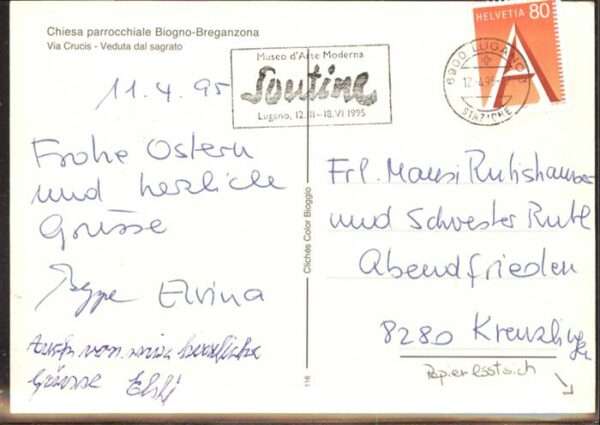 Chiesa parrocchiale Biogno-Breganzona
Via Crucis - Veduta dal sagrato
Museo d'Arte Moderna
Soutine
Lugano, 12.III-18.VI 1995
HELVETIA 80
A
6900 LUGANO
STAZIONE
11.4.95
Frohe Ostern
und herzliche
Grüsse
Elvina
Auch von mir herzliche
Grüsse
Clichés Color Bioggio
116
Frl. Mausi Rutishauser
und Schwester Ruth
Abendfrieden
8280 Kreuzlingen